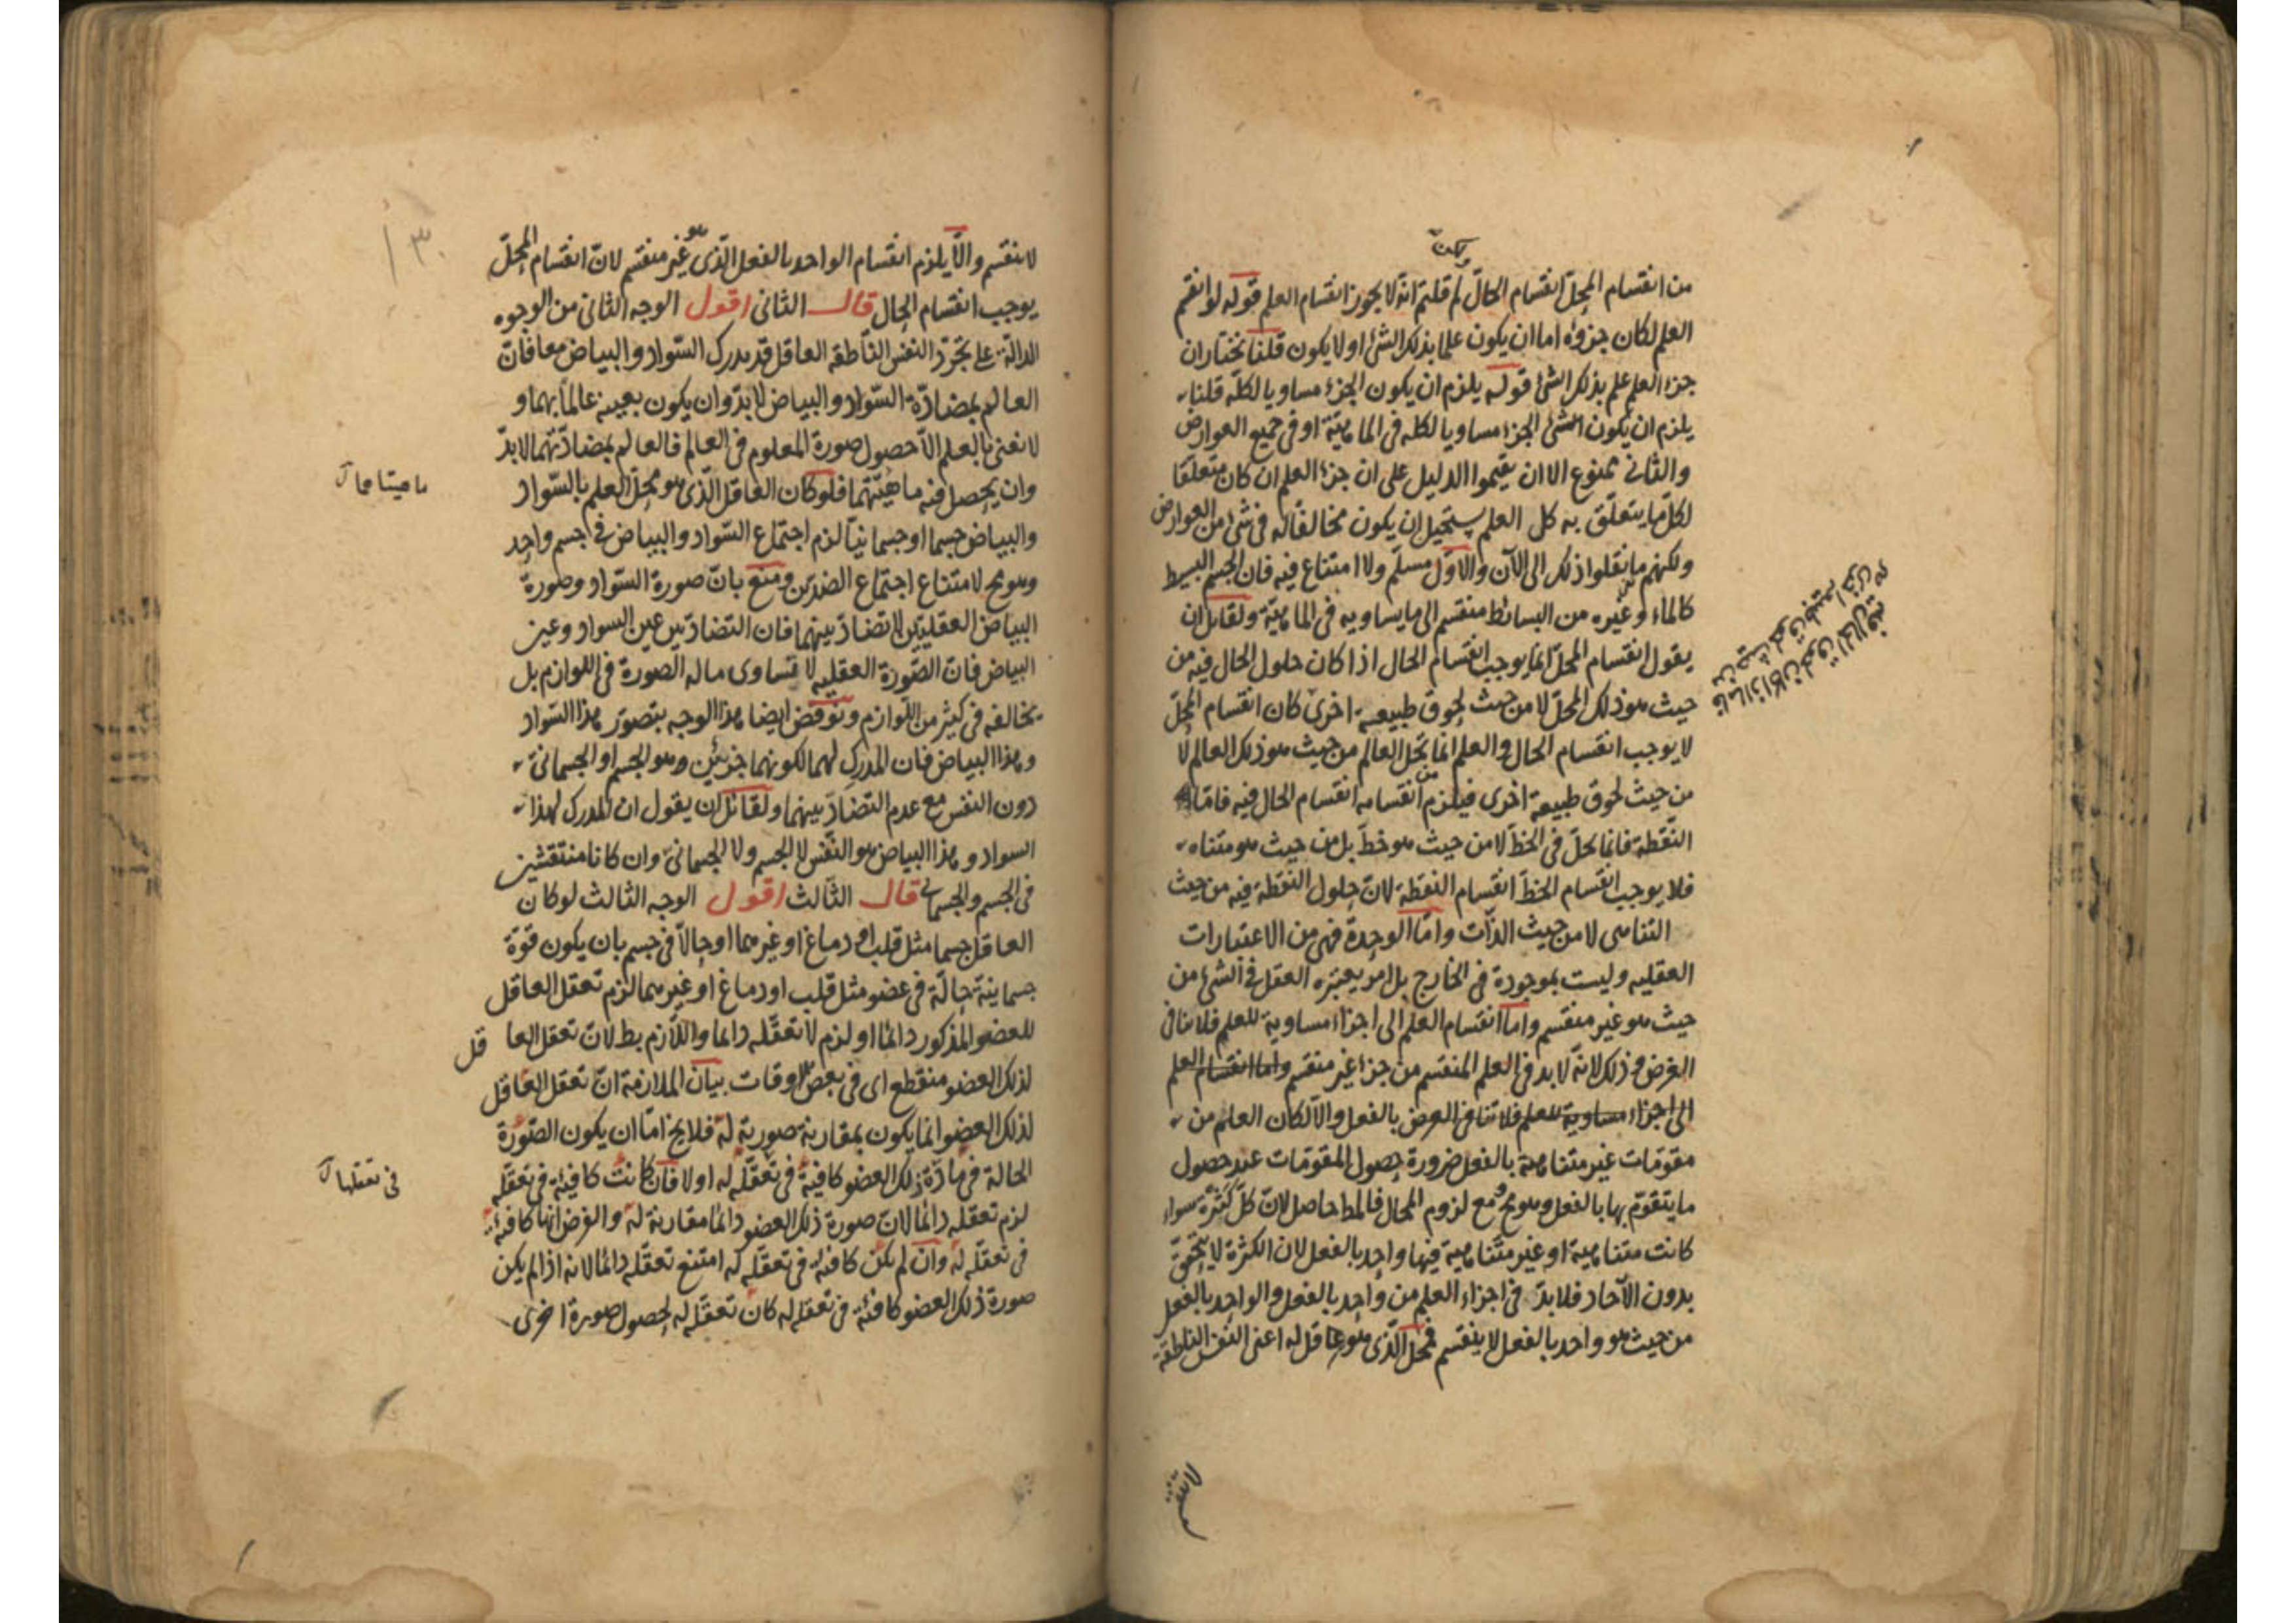 من انقسام المحل انقسام الحال لم قلتم انه لا يجوز انقسام العلم قوله لو انقسم
العلم لكان جزؤه اما ان يكون علما بذلك الشئ اولا يكون قلنا نختار ان
جزء العلم علم بذلك الشئ قوله يلزم ان يكون الجزء مساويا لكله قلنا
يلزم ان يكون الجزء مساويا لكله فى الماهية او فى جميع العوارض
والثانى ممنوع الا ان يقيموا الدليل على ان جزء العلم ان كان متعلقا
لكل ما يتعلق به كل العلم يستحيل ان يكون مخالفا له فى شئ من العوارض
ولكنهم ما نقلوا ذلك الى الآن والاول مسلم ولا امتناع فيه فان الجسم البسيط
كالماء وغيره من البسائط منقسم الى ما يساويه فى الماهية ولقائل ان
يقول انقسام المحل انما يوجب انقسام الحال اذا كان حلول الحال فيه من
حيث هو ذلك المحل لا من حيث لحوق طبيعة اخرى كان انقسام المحل
لا يوجب انقسام الحال والعلم انما يحل العالم من حيث هو ذلك العالم لا
من حيث لحوق طبيعة اخرى فيلزم من انقسامه انقسام الحال فيه فاما
النقطة فانما تحل فى الخط لا من حيث هو خط بل من حيث هو متناه
فلا يوجب انقسام الخط انقسام النقطة لان حلول النقطة فيه من حيث
التناهى لا من حيث الذات واما الوحدة فهى من الاعتبارات
العقليه وليست بموجودة فى الخارج بل امر يعتبره العقل فى الشئ من
حيث هو غير منقسم واما انقسام العلم الى اجزاء مساوية للعلم فلا ينافى
الغرض وذلك لانه لا بد فى العلم المنقسم من جزء غير منقسم واما انقسام العلم
الى اجزاء مساوية للعلم فلا تنافى الغرض بالفعل والا لكان العلم من
مقومات غير متناهية بالفعل ضرورة حصول المقومات عند حصول
ما يتقوم بها بالفعل وهو مح ومع لزوم المحال فالمط حاصل لان كل كثرة سواء
كانت متناهية او غير متناهية فيها واحد بالفعل لان الكثرة لا يتحقق
بدون الآحاد فلا بد فى اجزاء العلم من واحد بالفعل والواحد بالفعل
من حيث هو واحد بالفعل لا ينقسم فمحل الذى هو عاقل له اعنى النفس الناطقة
فاما اذا كان
لا ينقسم
١٣٠
لا ينقسم والا يلزم انقسام الواحد بالفعل الذى هو غير منقسم لان انقسام المحل
يوجب انقسام الحال قال الثانى اقول الوجه الثانى من الوجوه
الدالة على تجرد النفس الناطقة العاقل قد يدرك السواد والبياض معا فان
العالم بمضادة السواد والبياض لا بد وان يكون بعينه عالما بهما و
لا نعنى بالعلم الا حصول صورة المعلوم فى العالم فالعالم بمضادتهما لا بد
وان يحصل فيه ماهيتهما فلو كان العاقل الذى هو محل العلم بالسواد
ماهيتاهما
والبياض جسما او جسمانيا لزم اجتماع السواد والبياض فى جسم واحد
وهو مح لامتناع اجتماع الضدين ومنع بان صورة السواد وصورة
البياض العقليتين لا تضاد بينهما فان التضاد بين عين السواد وعين
البياض فان الصورة العقليه لا تساوى ماله الصورة فى اللوازم بل
يخالفه فى كثير من اللوازم ونوقض ايضا هذا الوجه بتصور هذا السواد
وهذا البياض فان المدرك لهما لكونهما جزئين وهو الجسم او الجسمانى
دون النفس مع عدم التضاد بينهما ولقائل ان يقول ان المدرك لهذا
السواد وهذا البياض هو النفس لا الجسم ولا الجسمانى وان كانا منتقشين
فى الجسم والجسمانى قال الثالث اقول الوجه الثالث لو كان
العاقل جسما مثل قلب او دماغ او غيرهما او حالا فى جسم بان يكون قوة
جسمانية حالة فى عضو مثل قلب او دماغ او غيرهما لزم تعقل العاقل
للعضو المذكور دائما او لزم لا تعقله دائما واللازم بط لان تعقل العاقل
لذلك العضو منقطع اى فى بعض الاوقات بيان الملازمة ان تعقل العاقل
لذلك العضو انما يكون بمقارنة صورية له فلا يخ اما ان يكون الصورة
الحالة فى مادة ذلك العضو كافية فى تعقله له اولا فان كانت كافية فى تعقله
فى تعقلها
لزم تعقله دائما لان صورة ذلك العضو دائما مقارنة له والفرض انها كافية
فى تعقله له وان لم تكن كافية فى تعقله له امتنع تعقله دائما لانه اذا لم يكن
صورة ذلك العضو كافية فى تعقله له كان تعقله له لحصول صورة اخرى